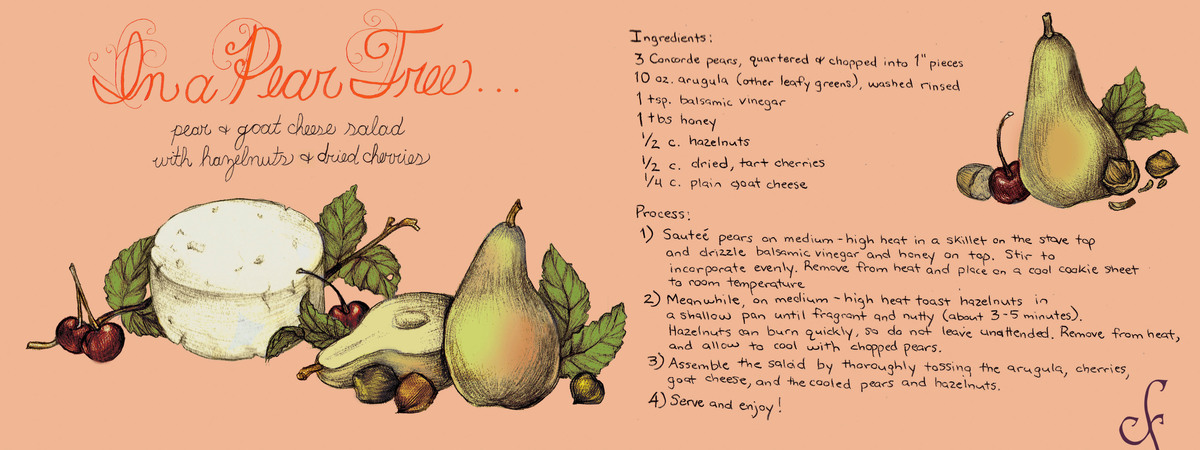 In a Pear Tree...
pear & goat cheese salad
with hazelnuts & dried cherries
Ingredients:
3 Concorde pears, quartered & chopped into 1" pieces
10 oz. arugula (other leafy greens), washed rinsed
1 tsp. balsamic vinegar
1 tbs honey
1/2 c. hazelnuts
1/2 c. dried, tart cherries
1/4 c. plain goat cheese
Process:
1) Sauteé pears on medium-high heat in a skillet on the stove top
and drizzle balsamic vinegar and honey on top. Stir to
incorporate evenly. Remove from heat and place on a cool cookie sheet
to room temperature
2) Meanwhile, on medium-high heat toast hazelnuts in
a shallow pan until fragrant and nutty (about 3-5 minutes).
Hazelnuts can burn quickly, so do not leave unattended. Remove from heat,
and allow to cool with chopped pears.
3) Assemble the salad by thoroughly tossing the arugula, cherries,
goat cheese, and the cooled pears and hazelnuts.
4) Serve and enjoy!